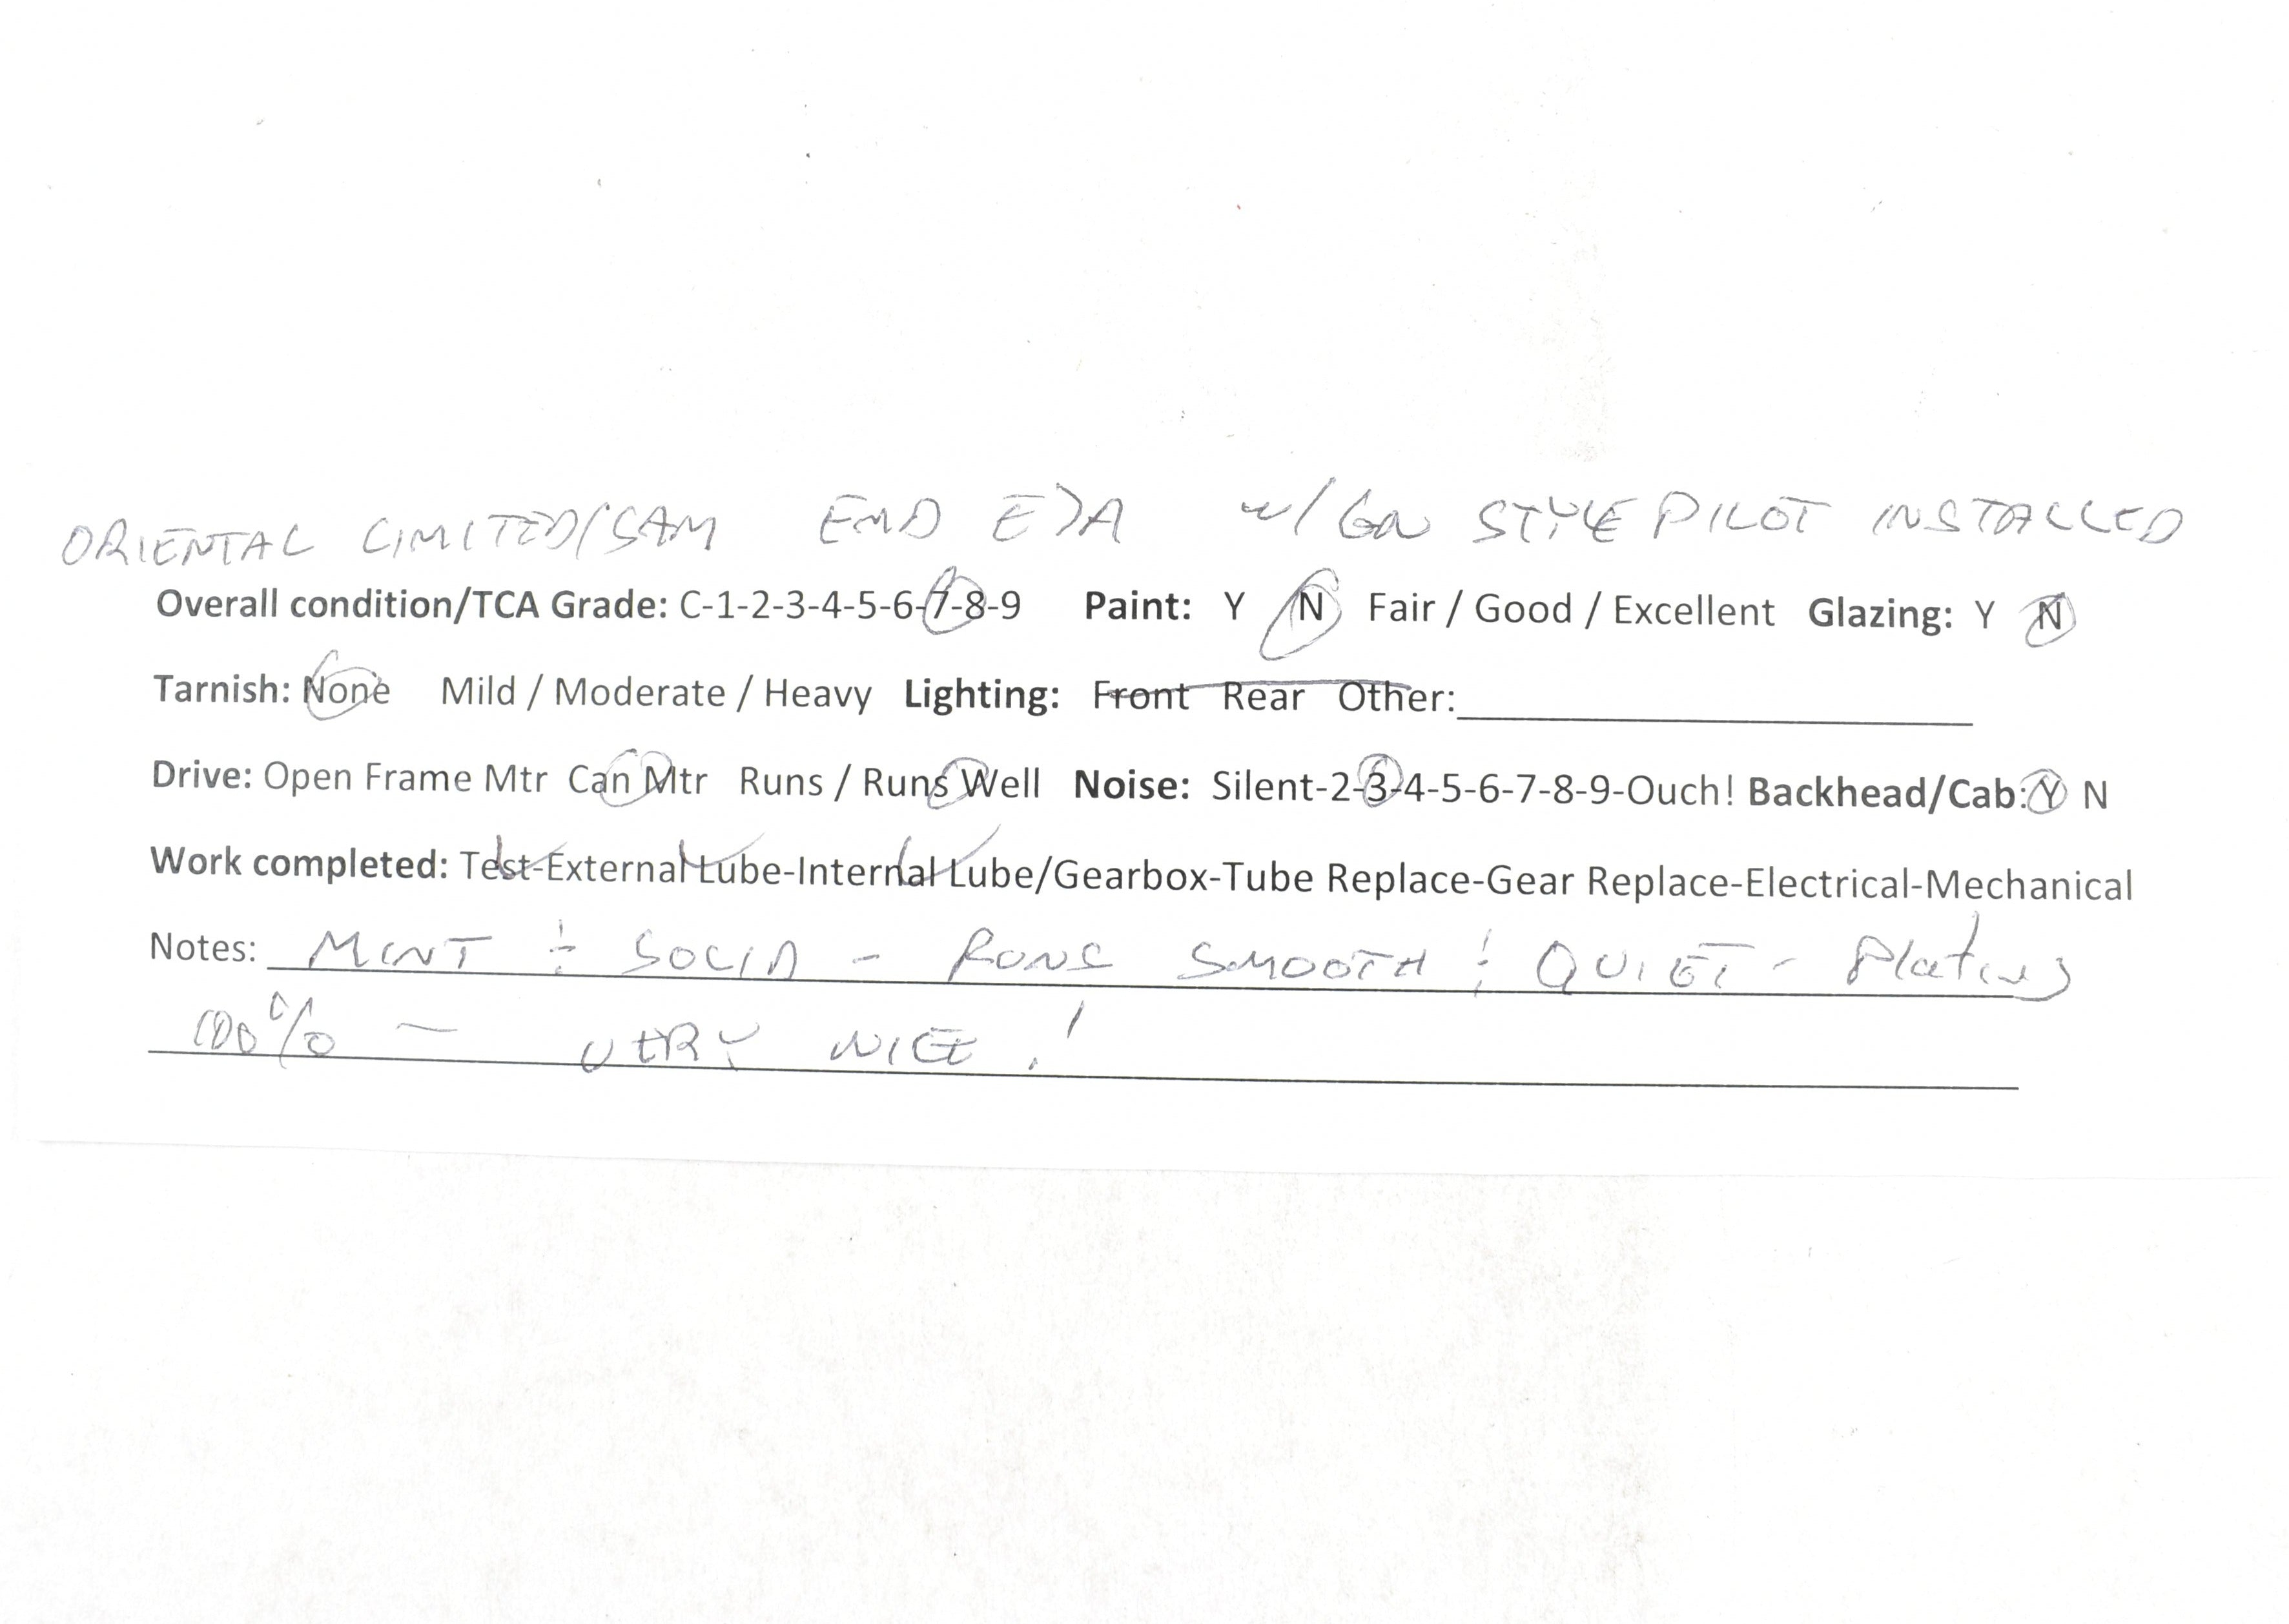 ORIENTAL LIMITED/SAM EMD E7A w/ GN STYLE PILOT INSTALLED
Overall condition/TCA Grade: C-1-2-3-4-5-6-7-8-9 Paint: Y N Fair / Good / Excellent Glazing: Y N
Tarnish: None Mild / Moderate / Heavy Lighting: Front Rear Other:
Drive: Open Frame Mtr Can Mtr Runs / Runs Well Noise: Silent-2-3-4-5-6-7-8-9-Ouch! Backhead/Cab: Y N
Work completed: Test-External Lube-Internal Lube/Gearbox-Tube Replace-Gear Replace-Electrical-Mechanical
Notes: MINT & SOLID - RUNS SMOOTH & QUIET - Plating
100% - VERY NICE!